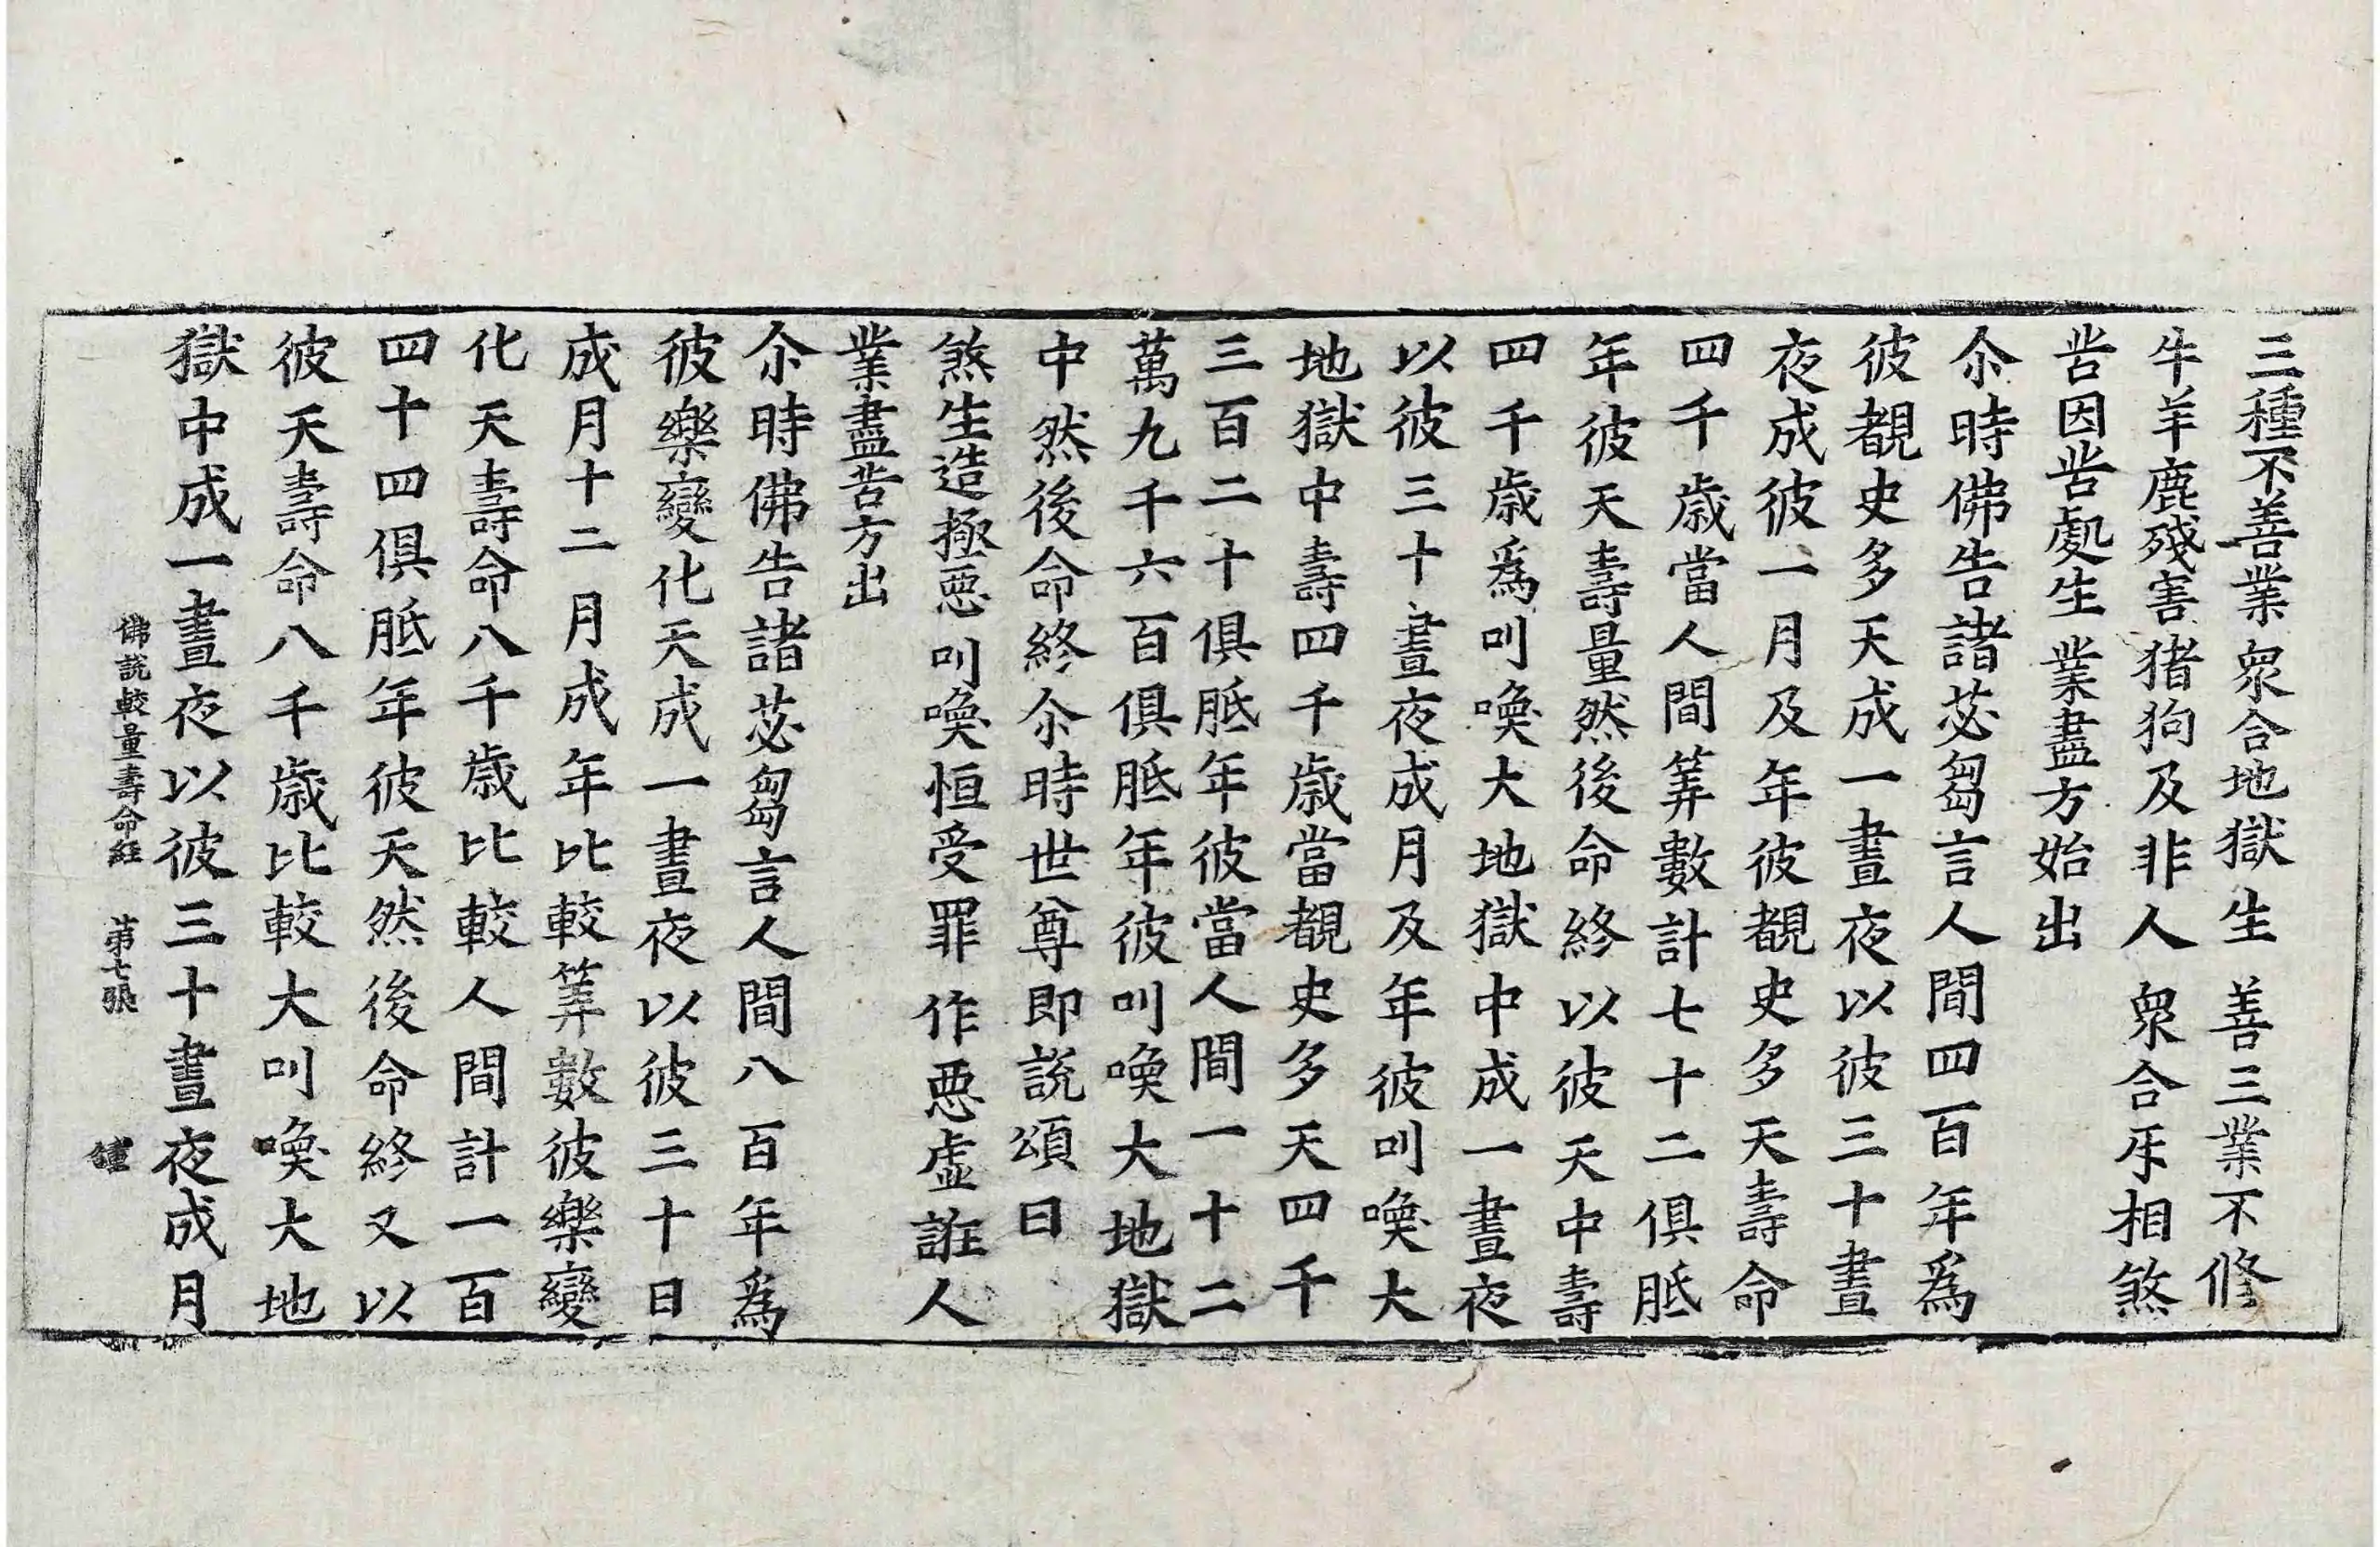 三種不善業衆合地獄生　善三業不修
牛羊鹿殘害猪狗及非人　衆合㸦相煞
苦因苦處生　業盡方始出
尒時佛告諸苾芻言人間四百年爲
彼覩史多天成一晝夜以彼三十晝
夜成彼一月及年彼覩史多天壽命
四千歲當人間筭數計七十二俱胝
年彼天壽量然後命終以彼天中壽
四千歲爲叫喚大地獄中成一晝夜
以彼三十晝夜成月及年彼叫喚大
地獄中壽四千歲當覩史多天四千
三百二十俱胝年彼當人間一十二
萬九千六百俱胝年彼叫喚大地獄
中然後命終尒時世尊即說頌曰
煞生造極惡叫喚恒受罪　作惡虛誑人
業盡苦方出
尒時佛告諸苾芻言人間八百年爲
彼樂變化天成一晝夜以彼三十日
成月十二月成年比較筭數彼樂變
化天壽命八千歲比較人間計一百
四十四俱胝年彼天然後命終又以
彼天壽命八千歲比較大叫喚大地
獄中成一晝夜以彼三十晝夜成月
佛說較量壽命經　第七張　鍾